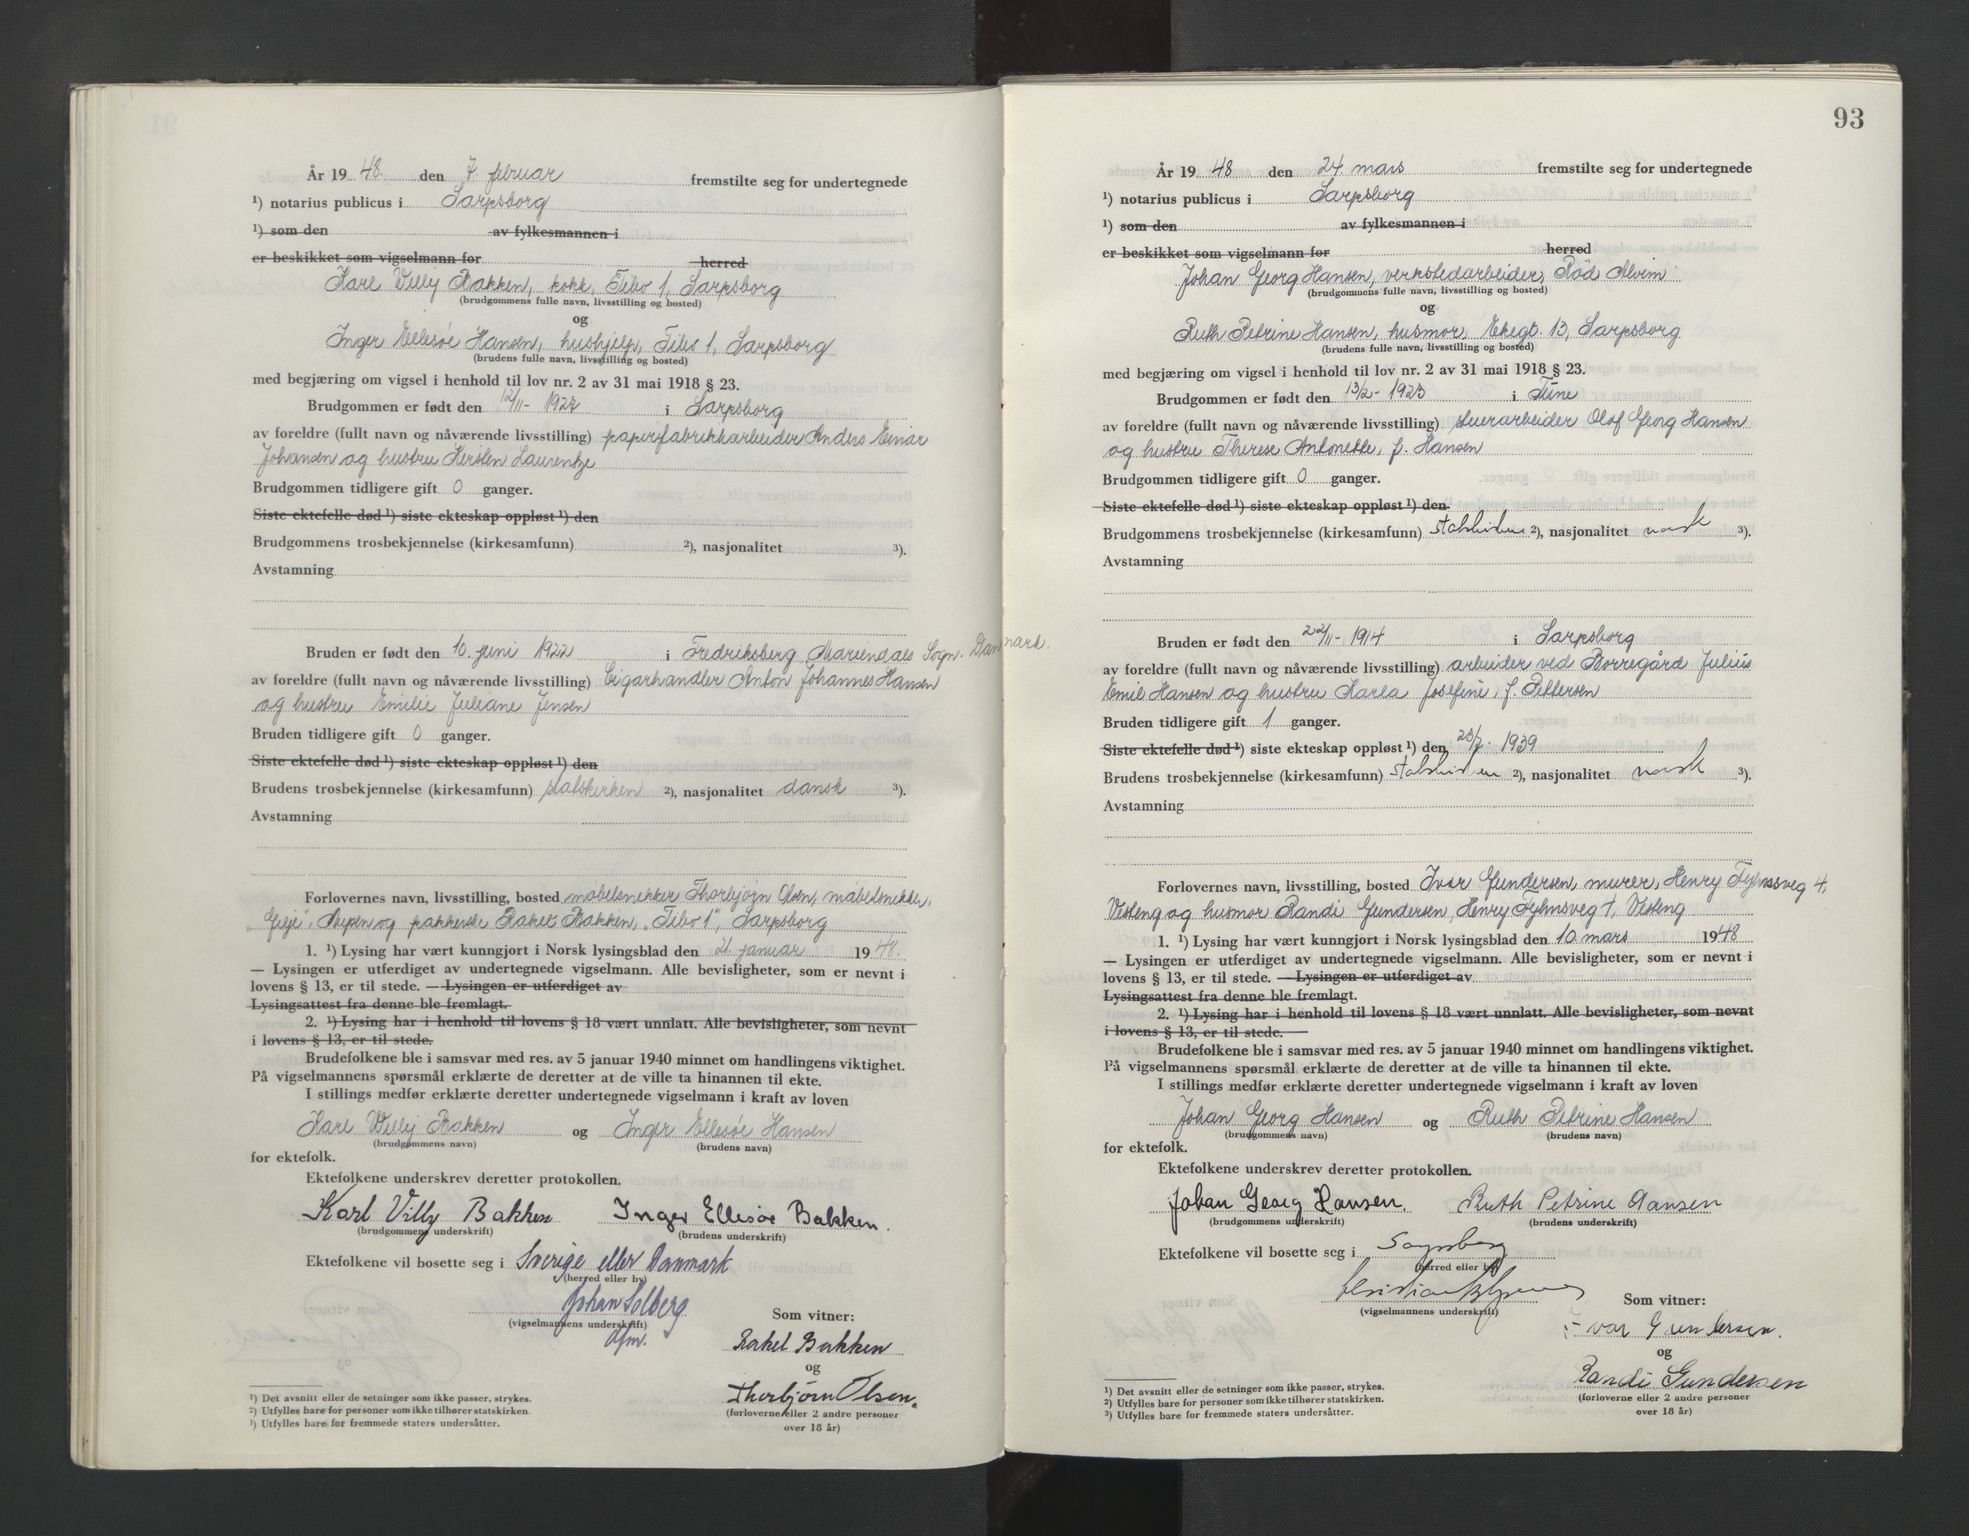 År 1948. den 7. februar fremstilte seg for undertegnede
¹) notarius publicus i Sarpsborg
¹) som den av fylkesmannen i
er beskikket som vigselmann for herred
Karl Willy Bakken, kokk, Tibo 1, Sarpsborg
(brudgommens fulle navn, livsstilling og bosted)
og
Inger Ellesöe Hansen, hushjelp, Tibo 1, Sarpsborg
(brudens fulle navn, livsstilling og bosted)
med begjæring om vigsel i henhold til lov nr. 2 av 31 mai 1918 § 23.
Brudgommen er født den 12/11- 1922 i Sarpsborg
av foreldre (fullt navn og nåværende livsstilling) papirfabrikkarbeider Anders Einar
Johansen og hustru Kirsten Laurentze
Brudgommen tidligere gift 0 ganger.
Siste ektefelle død ¹) siste ekteskap oppløst ¹) den
Brudgommens trosbekjennelse (kirkesamfunn) ²), nasjonalitet ³).
Avstamning
Bruden er født den 10. juni 1922 i Fredriksberg Mariendals Sogn. Danmark.
av foreldre (fullt navn og nåværende livsstilling) Cigarhandler Anton Johannes Hansen
og hustru Emilie Juliane Jensen
Bruden tidligere gift 0 ganger.
Siste ektefelle død ¹) siste ekteskap oppløst ¹) den
Brudens trosbekjennelse (kirkesamfunn) statskirken ²), nasjonalitet dansk ³).
Avstamning
Forlovernes navn, livsstilling, bosted møbelsnekker Thorbjørn Olsen, møbelsnekker,
og pakkerske Rakel Bakken, „Tibo 1", Sarpsborg
1. ¹) Lysing har vært kunngjort i Norsk lysingsblad den 21. januar 1948.
— Lysingen er utferdiget av undertegnede vigselmann. Alle bevisligheter, som er nevnt i
lovens § 13, er til stede. — Lysingen er utferdiget av
Lysingsattest fra denne ble fremlagt.
2. ¹) Lysing har i henhold til lovens § 18 vært unnlatt. Alle bevisligheter, som nevnt
i lovens § 13, er til stede.
Brudefolkene ble i samsvar med res. av 5 januar 1940 minnet om handlingens viktighet.
På vigselmannens spørsmål erklærte de deretter at de ville ta hinannen til ekte.
I stillings medfør erklærte deretter undertegnede vigselmann i kraft av loven
Karl Willy Bakken og Inger Ellesöe Hansen
(brudgommens navn) (brudens navn)
for ektefolk.
Ektefolkene underskrev deretter protokollen.
Karl Villy Bakken Inger Ellesöe Bakken.
(brudgommens underskrift) (brudens underskrift)
Ektefolkene vil bosette seg i Sverige eller Danmark
(herred eller by)
Johan Solberg
(vigselmannens underskrift) Som vitner:
dfm.
Rakel Bakken
og
Thorbjørn Olsen.
(forloverne eller 2 andre personer
over 18 år)
¹) Det avsnitt eller de setninger som ikke passer, strykes.
²) Utfylles bare for personer som ikke tilhører statskirken.
³) Utfylles bare for fremmede staters undersåtter.
93
År 1948 den 24. mars fremstilte seg for undertegnede
¹) notarius publicus i Sarpsborg
¹) som den av fylkesmannen i
er beskikket som vigselmann for herred
Johan Georg Hansen, verkstedarbeider, Röd Alvim
(brudgommens fulle navn, livsstilling og bosted)
og
Ruth Petrine Hansen, husmor, Ekegt. 13, Sarpsborg
(brudens fulle navn, livsstilling og bosted)
med begjæring om vigsel i henhold til lov nr. 2 av 31 mai 1918 § 23.
Brudgommen er født den 13/2- 1923 i Tune
av foreldre (fullt navn og nåværende livsstilling) Olof Georg Hansen
og hustru Therese Antonette, f. Hansen
Brudgommen tidligere gift 0 ganger.
Siste ektefelle død ¹) siste ekteskap oppløst ¹) den
Brudgommens trosbekjennelse (kirkesamfunn) statskirken ²), nasjonalitet norsk ³).
Avstamning
Bruden er født den 22/11- 1914 i Sarpsborg
av foreldre (fullt navn og nåværende livsstilling) arbeider ved Borregård Julius
Emil Hansen og hustru Karla Josefine, f. Pettersen
Bruden tidligere gift 1 ganger.
Siste ektefelle død ¹) siste ekteskap oppløst ¹) den 28/7- 1939
Brudens trosbekjennelse (kirkesamfunn) statskirken ²), nasjonalitet norsk ³).
Avstamning
Forlovernes navn, livsstilling, bosted Ivar Gundersen, murer, Henry 4,
Vesteng og husmor Randi Gundersen, Henry Vesteng
1. ¹) Lysing har vært kunngjort i Norsk lysingsblad den 10 mars 1948
— Lysingen er utferdiget av undertegnede vigselmann. Alle bevisligheter, som er nevnt i
lovens § 13, er til stede. — Lysingen er utferdiget av
Lysingsattest fra denne ble fremlagt.
2. ¹) Lysing har i henhold til lovens § 18 vært unnlatt. Alle bevisligheter, som nevnt
i lovens § 13, er til stede. —
Brudefolkene ble i samsvar med res. av 5 januar 1940 minnet om handlingens viktighet.
På vigselmannens spørsmål erklærte de deretter at de ville ta hinannen til ekte.
I stillings medfør erklærte deretter undertegnede vigselmann i kraft av loven
Johan Georg Hansen og Ruth Petrine Hansen
(brudgommens navn) (brudens navn)
for ektefolk.
Ektefolkene underskrev deretter protokollen.
Johan Georg Hansen. Ruth Petrine Hansen
(brudgommens underskrift) (brudens underskrift)
Ektefolkene vil bosette seg i Sarpsborg
(herred eller by)
(vigselmannens underskrift) Som vitner:
Ivar Gundersen.
og
Randi Gundersen
(forloverne eller 2 andre personer
over 18 år)
¹) Det avsnitt eller de setninger som ikke passer, strykes.
²) Utfylles bare for personer som ikke tilhører statskirken.
³) Utfylles bare for fremmede staters undersåtter.